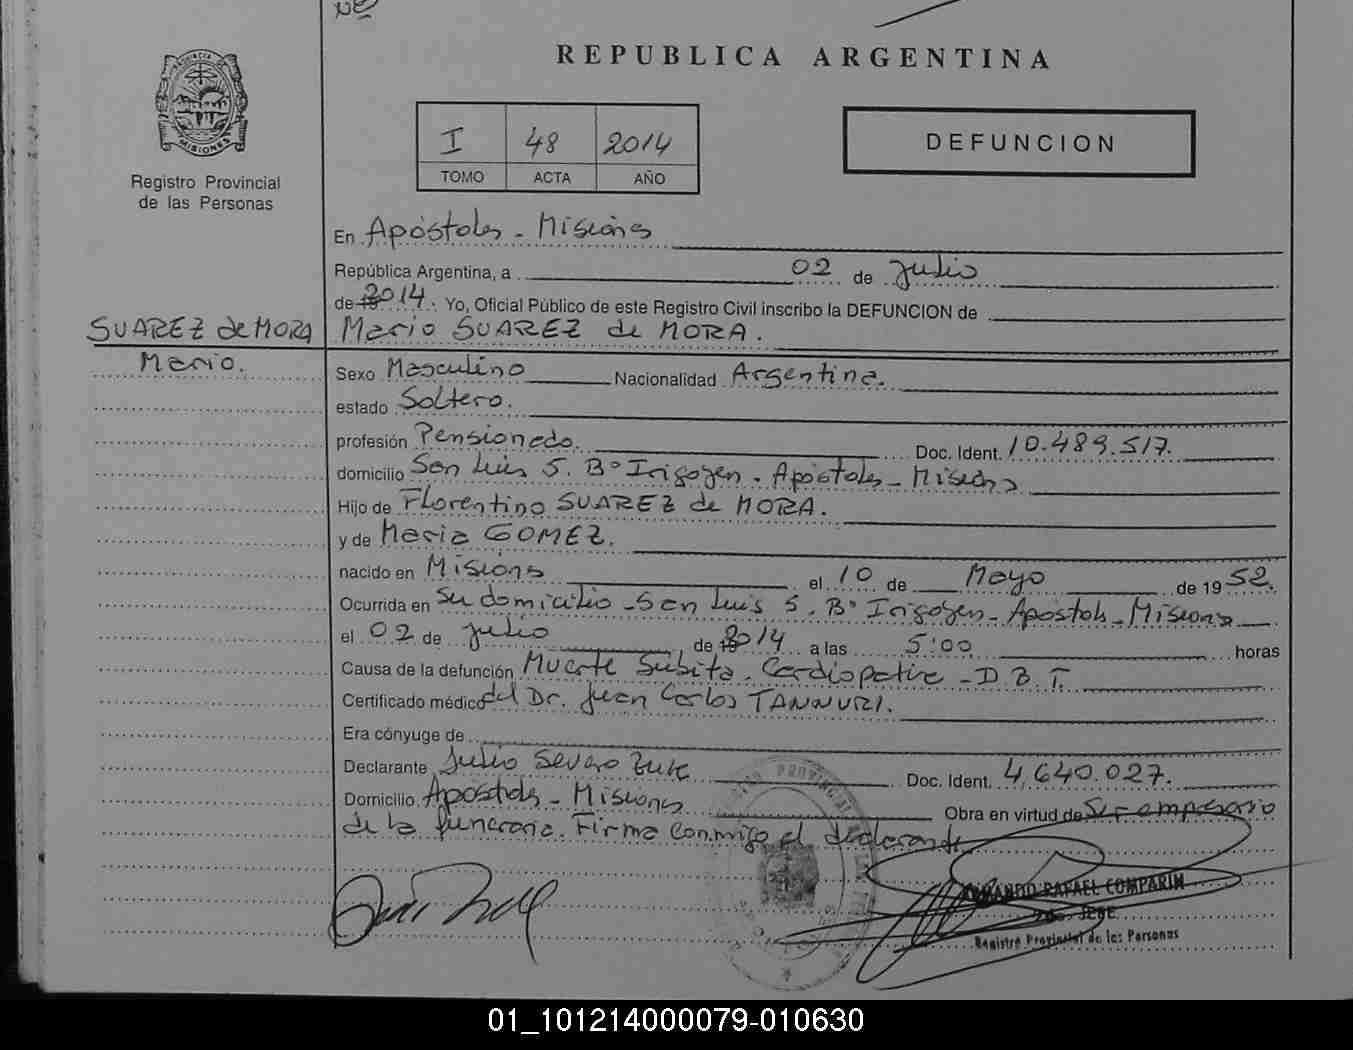 Nº
REPUBLICA ARGENTINA
PROVINCIA DE
MISIONES
Registro Provincial
de las Personas
I 48 2014
TOMO ACTA AÑO
DEFUNCION
En Apóstoles - Misiones
República Argentina, a 02 de Julio
de 2014. Yo, Oficial Público de este Registro Civil inscribo la DEFUNCION de
SUAREZ de MORA Mario SUAREZ de MORA.
Mario.
Sexo Masculino Nacionalidad Argentina.
estado Soltero.
profesión Pensionado. Doc. Ident. 10.489.517.
domicilio San Luis S. Bº Irigoyen - Apóstoles - Misiones
Hijo de Florentino SUAREZ de MORA.
y de Maria GOMEZ.
nacido en Misiones el 10 de Mayo de 1952.
Ocurrida en Su domicilio - San Luis S. Bº Irigoyen - Apóstoles - Misiones
el 02 de Julio de 2014 a las 5:00 horas
Causa de la defunción Muerte Subita - Cardiopatia - D.B.T.
Certificado médico del Dr. Juan Carlos TANNURI.
Era cónyuge de
Declarante Julio Severo Zuk Doc. Ident. 4.640.027.
Domicilio Apostoles - Misiones Obra en virtud de Ser empresario
de la funeraria. Firma conmigo el declarante
RAFAEL COMPARIN
JEFE
Registro Provincial de las Personas
01_101214000079-010630